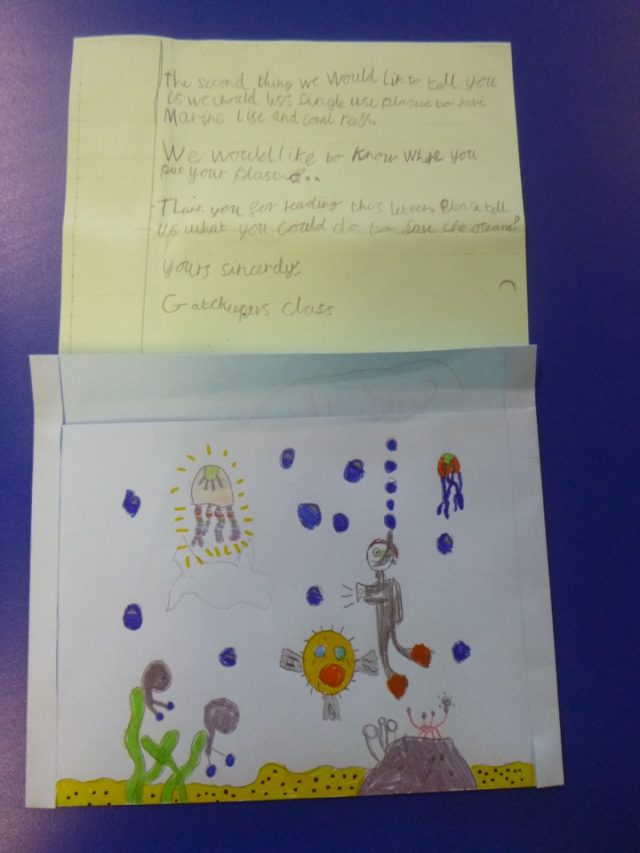 The second thing we would like to tell you
is we should less single use plastic to save
Marine Life and coral reefs.
We would like to know where you
put your plastic..
Thank you for reading this letter. Please tell
us what you could do to save the oceans?
yours sincerdy,
Gatekeepers class